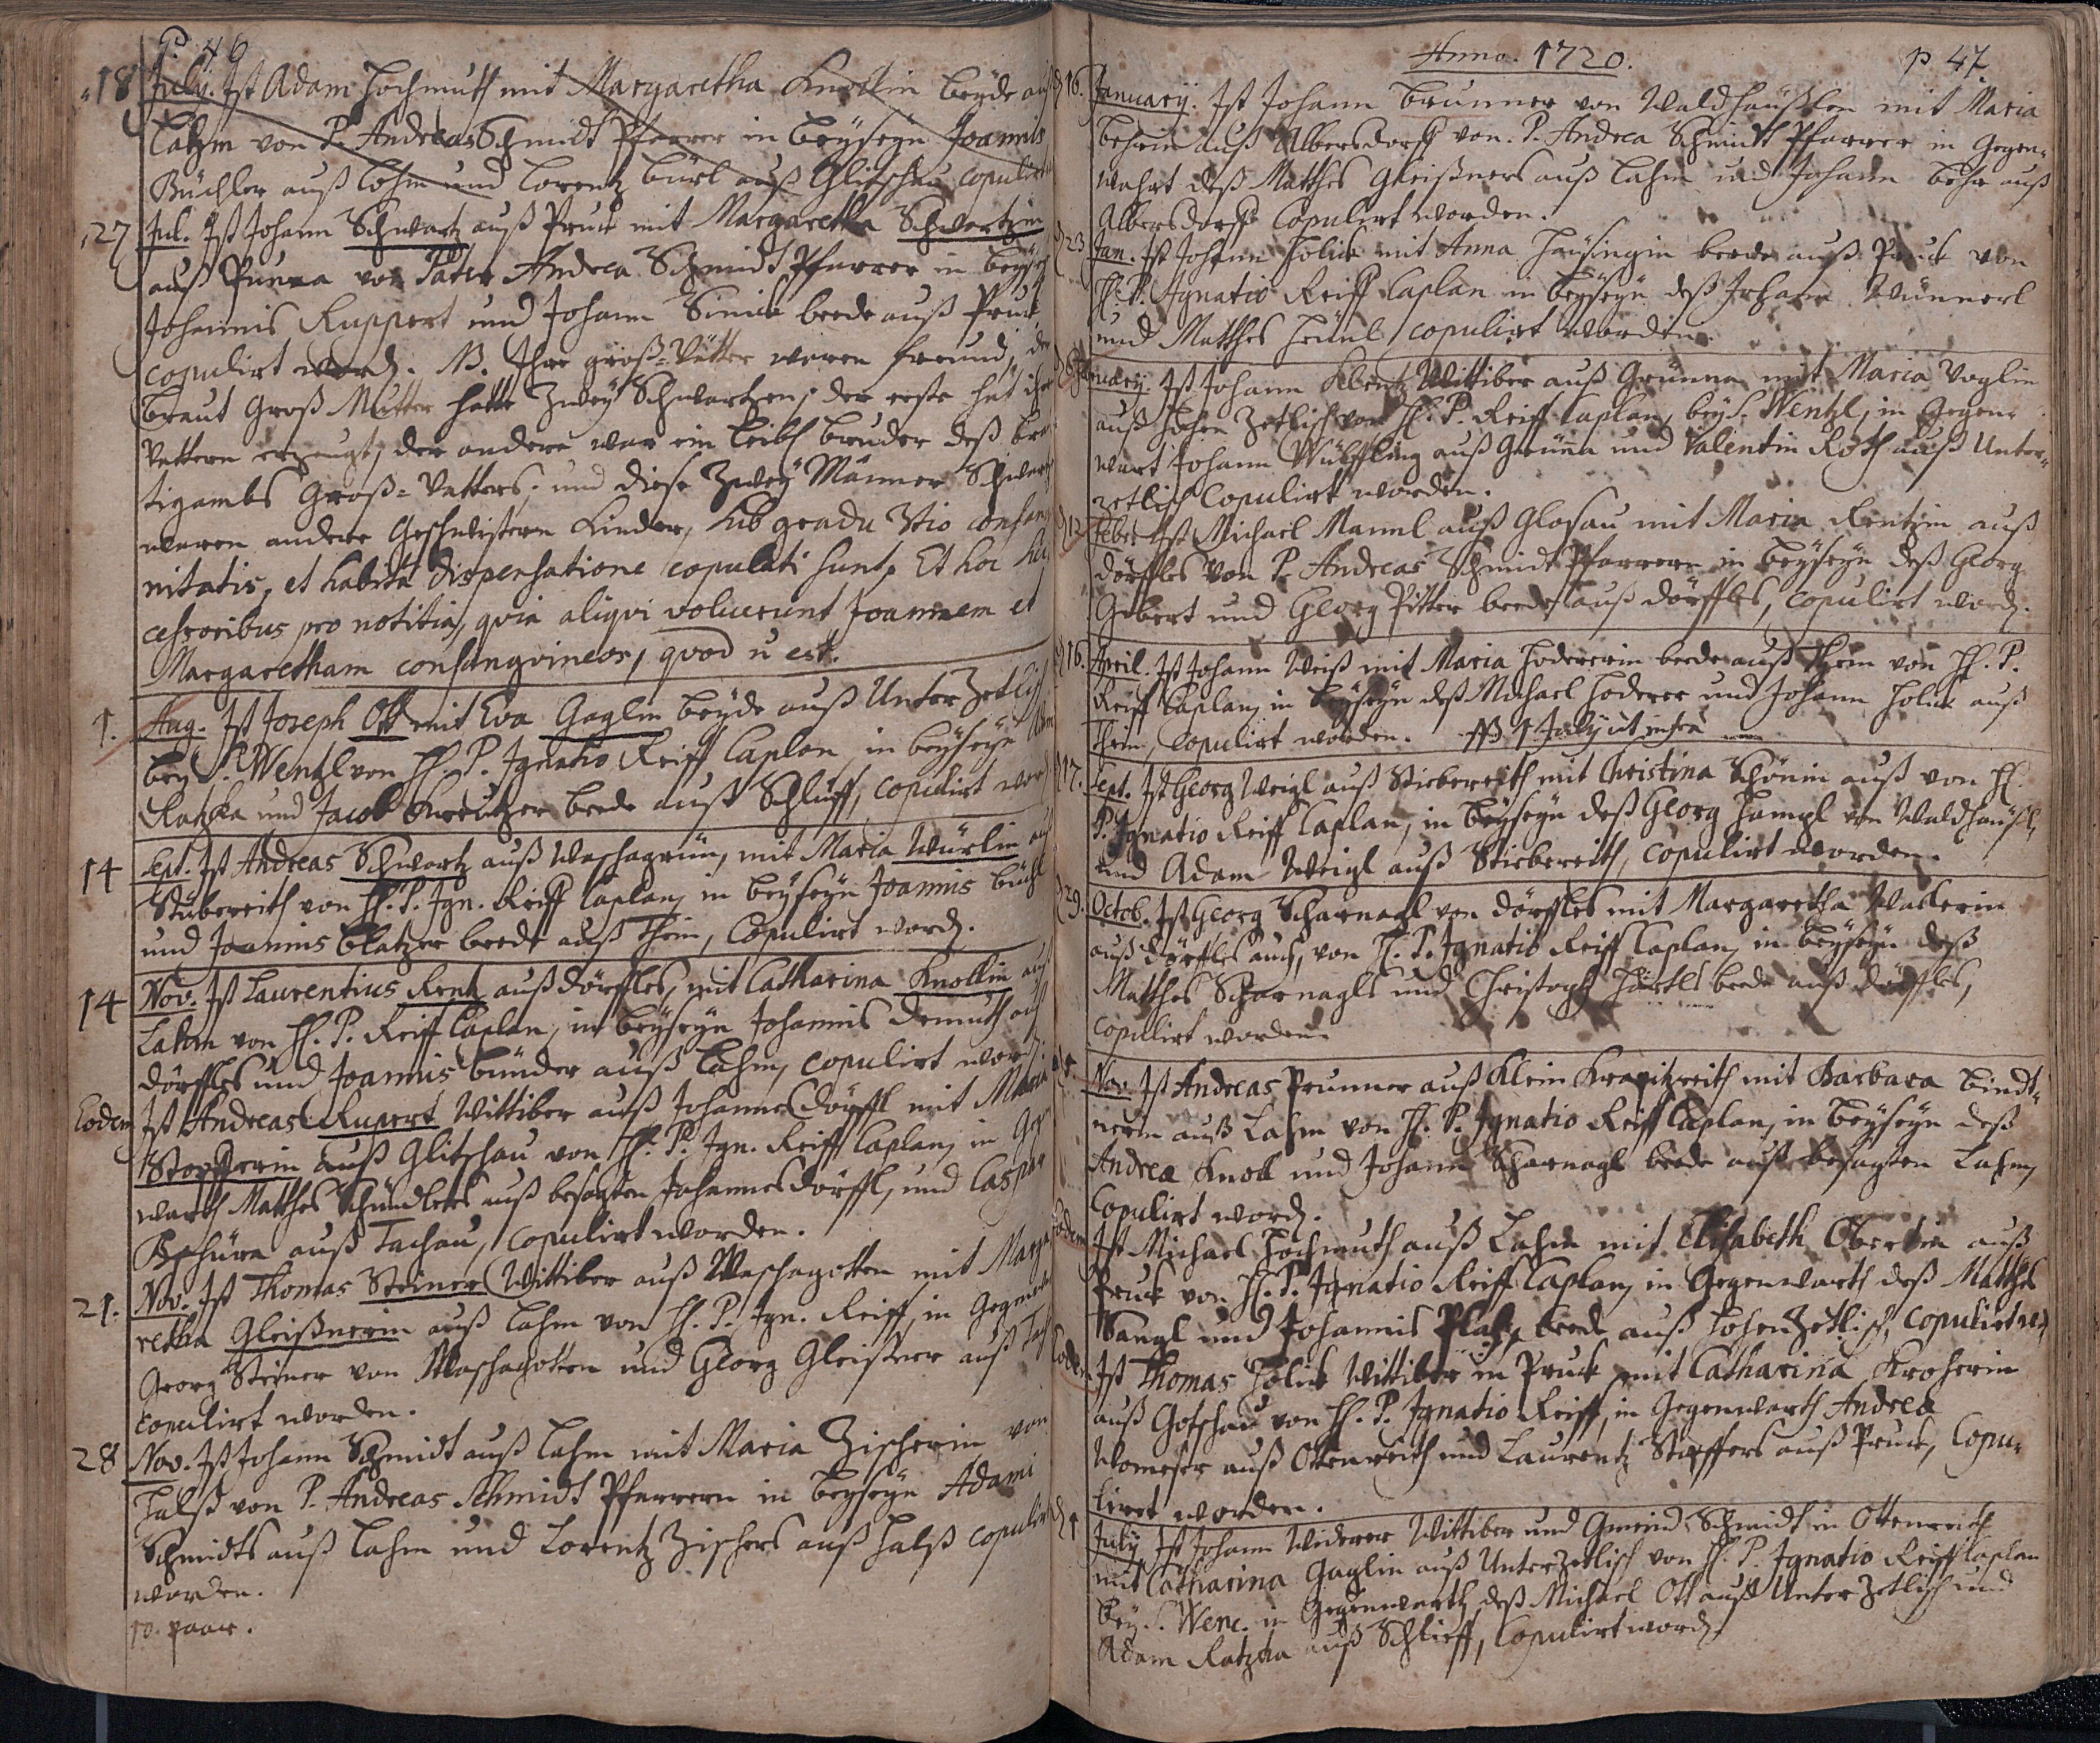 P. 46
18 July. Ist Adam Hochmuth mit Margaretha Knollin beyde auß
Lahm von P. Andreas Schmidt Pfarrer in beyseyn Joannis
Büchler auß Lohm und Lorentz bürl auß Glitschau copulirt
27 Jul. Ist Johann Schwartz auß Pruck mit Margaretha Schwartzin
auß Punna von Pater Andrea Schmidt Pfarrer in beyseyn
Johannis Ruppert und Johann Simick beede auß Pruck
copulirt word. NB. Ihre groß-Vätter waren freund, der
braut Groß Mutter hatte Zwey Schwartzen, der erste hat ihren
Vattern erzeugt, der andere war ein leibl. bruder deß breu-
tigambs Groß-Vatters, und diese Zwey Männer Schwartz
waren andere Geschwistern Kinder, sub gradu 3tio consangui-
nitatis, et habita dispensatione copulati sunt. Et hoc suc-
cessoribus pro notitia, qvia aliqvi voluerunt Joannem et
Margaretham consangvineos, qvod ñ est.
1. Aug. Ist Joseph Ott mit Eva Gaglin beyde auß Unter Zetlisch
bey S. Wentzl von H. P. Ignatio Reiff Caplan, in beyseyn
Ratzka und Jacob Kreutzer beede auß Schlieff, copulirt word
14 Sept. Ist Andreas Schwartz auß Waschagrün, mit Maria Würlin auß
Stübereith von H. P. Ign. Reiff Caplan, in beyseyn Joannis büchl
und Joannis blatzer beede auß Thein, Copulirt word.
14 Nov. Ist Laurentius Rentz auß dörffles, mit Catharina Knollin auß
Lahm von H. P. Reiff Caplan, in beyseyn Johannis Demuth auß
dörffles und Joannis bünder auß Lahm, copulirt word.
Eodem Ist Andreas Rupert Wittiber auß Johannesdörffl mit Maria
Stopfferin auß Glitschau von H. P. Ign. Reiff Caplan, in Gegen
warth Matthes Schindlers auß besagten Johannesdörffl, und Caspar
auß Tachau, copulirt worden.
21. Nov. Ist Thomas Steiner Wittiber auß Waschagotten mit Marga
retha Gleißnerin auß Lahm von H. P. Ign. Reiff, in Gegenwarth
Georg Steiner von Waschagotten und Georg Gleissner auß Lahm
copulirt worden.
28 Nov. Ist Johann Schmidt auß Lahm mit Maria Zischerin von
Halß von P. Andreas Schmidt Pfarrern in beyseyn Adami
Schmidts auß Lahm und Lorentz Zischers auß Halß copulirt
worden.
10. paar.
Anno. 1720. p 47.
16. January. Ist Johann Brunner von Waldhäußlen mit Maria
behrin auß Albersdorff von P. Andrea Schmidt Pfarrer in Gegen-
wahrt deß Matthes Gleißners auß Lahm und Johann behr auß
Albersdorff Copulirt worden.
23 Jan. Ist Johann Holick mit Anna Häusingin beede auß Pruck von
H. P. Ignatio Reiff Caplan in beyseyn deß Johann Wünnerl
und Matthes copulirt worden.
Ist Johann Wittiber auß Grünna mit Maria Voglin
auß Hohen Zetlisch von H. P. Reiff Caplan, bey S. Wentzl, in Gegen-
wart Johann Wülffling auß Grünna und Valentin Roth auß Unter-
zetlisch Copulirt worden.
12 Febr. Ist Michael Mannl auß Glosau mit Maria Rentzin auß
dörffles von P. Andreas Schmidt Pfarrern in beyseyn deß Georg
Gebert und Georg Pitter beede auß dörffles, copulirt word.
16. April. Ist Johann Weiß mit Maria Hodererin beede auß Thein von H. P.
Reiff Caplan, in beyseyn deß Michael Hoderer und Johann Holick auß
Thein, Copulirt worden. NB 1 July ut infra
17. Sept. Ist Georg Weigl auß Stiebereith mit Christina Schönin auß von H.
P. Ignatio Reiff Caplan, in beyseyn deß Georg Hampl von Waldhäußl,
und Adam Weigl auß Stiebereith, copulirt worden.
29. Octob. Ist Georg Scharnagl von dörffles mit Margaretha Wallerin
auß dörffles auch, von H. P. Ignatio Reiff Caplan, in beyseyn deß
Matthes Scharnagls und Christoph Härtls beede auß dörffles,
copulirt worden.
Nov. Ist Andreas Prunner auß Klein Krapitzreith mit Barbara Bindt-
nerin auß Lahm von H. P. Ignatio Reiff Caplan, in beyseyn deß
Andrea Knoll und Johann Scharnagl beede auß besagten Lahm,
Copulirt word.
Eodem Ist Michael Hochmuth auß Lahm mit Elisabeth Obertin auß
Pruck von H. P. Ignatio Reiff Caplan, in Gegenwarth deß Matthes
Sangl und Johannis Platz, beede auß Hohenzetlisch, copulirt word
Eodem Ist Thomas Holick Wittiber in Pruck mit Catharina Kroherin
auß Gotschau von H. P. Ignatio Reiff, in Gegenwarth Andrea
Womeser auß Ottenreith und Laurentz Stopffers auß Pruck, Copu-
lirt worden.
1 July Ist Johann Widerer Wittiber und Gmeind Schmidt in Ottenreith
mit Catharina Gaglin auß Unterzetlisch von H. P. Ignatio Reiff Caplan
bey S. Wenc. in Gegenwarth deß Michael Ott auß Unter Zetlisch und
Adam Ratzka auß Schlieff, Copulirt word